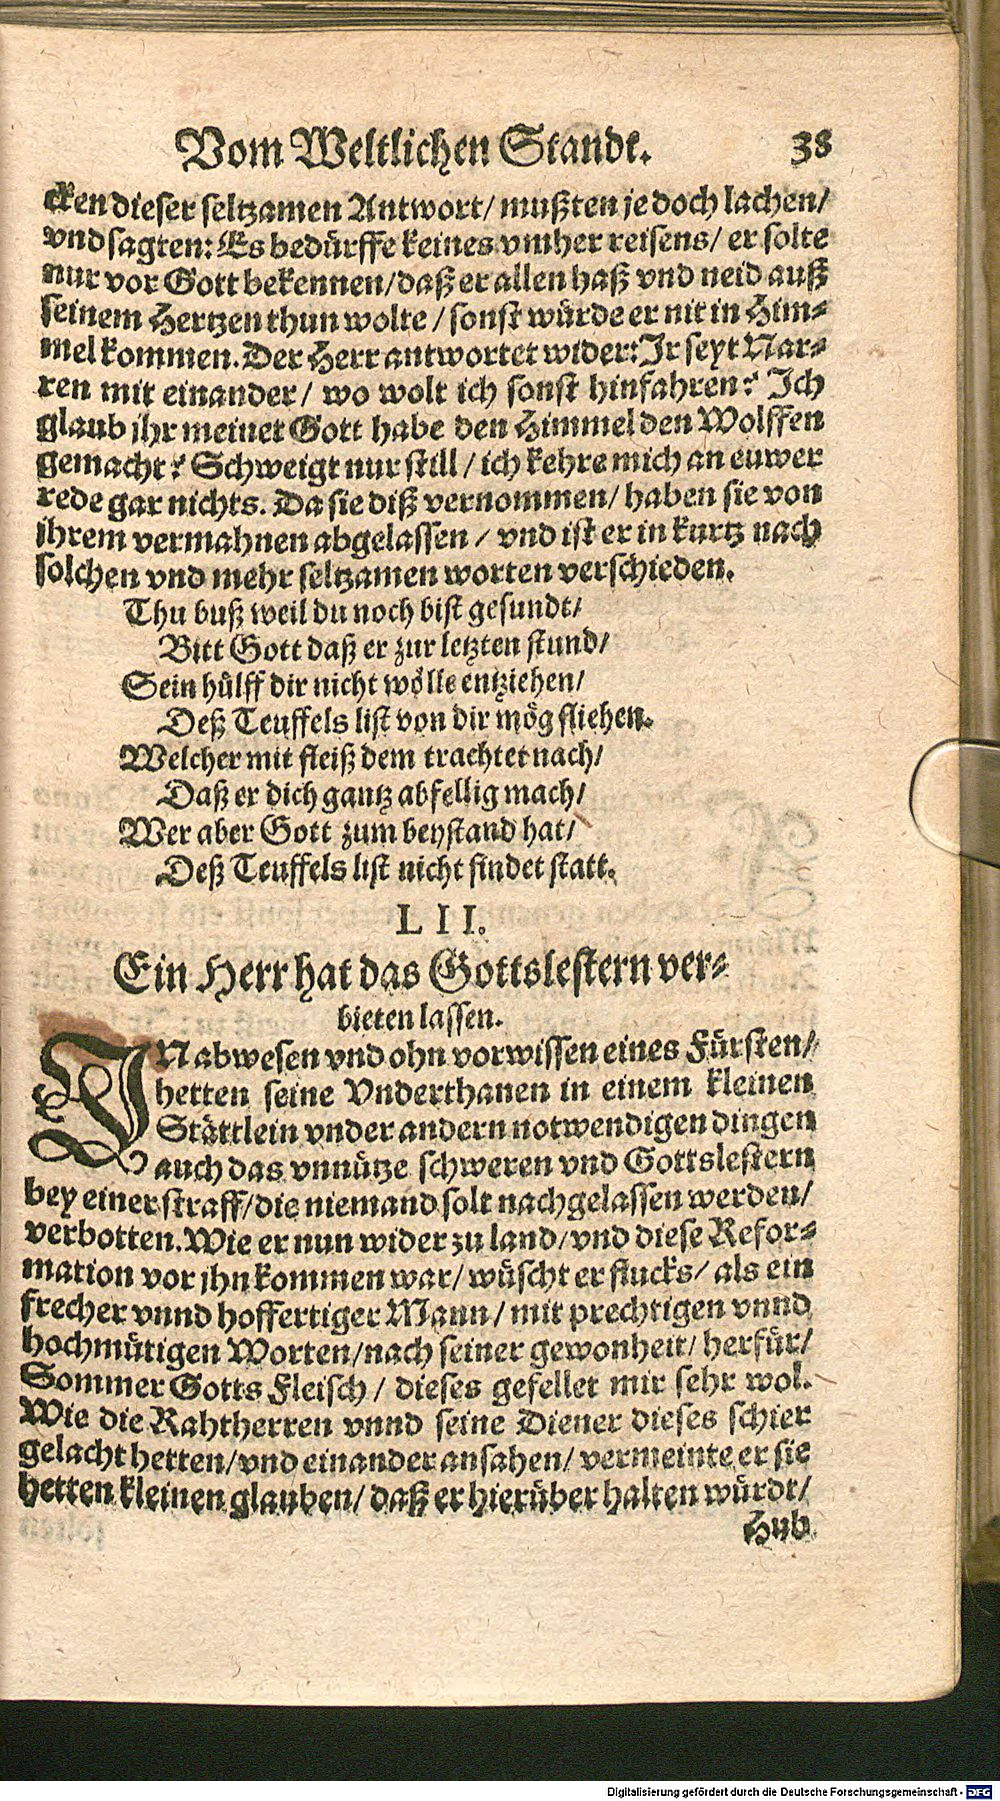 Vom Weltlichen Standt. 38
cken dieser seltzamen Antwort/ mußten jedoch lachen/
vnd sagten: Es bedürffe keines vmher reisens/ er solte
nur vor Gott bekennen/ daß er allen haß vnd neid auß
seinem Hertzen thun wolte / sonst würde er nit in Him⸗
mel kommen. Der Herr antwortet wider: Jr seyt Nar⸗
ren mit einander/ wo wolt ich sonst hinfahren? Ich
glaub jhr meinet Gott habe den Himmel den Wolffen
gemacht? Schweigt nur still / ich kehre mich an euwer
rede gar nichts. Da sie diß vernommen/ haben sie von
ihrem vermahnen abgelassen / vnd ist er in kurtz nach
solchen vnd mehr seltzamen worten verschieden.
Thu buß weil du noch bist gesundt/
Bitt Gott daß er zur letzten stund/
Sein hülff dir nicht wölle entziehen/
Deß Teuffels list von dir mög fliehen.
Welcher mit fleiß dem trachtet nach/
Daß er dich gantz abfellig mach/
Wer aber Gott zum beystand hat/
Deß Teuffels list nicht findet statt.
LII.
Ein Herr hat das Gottslestern ver⸗
bieten lassen.
IN abwesen vnd ohn vorwissen eines Fürsten/
hetten seine Vnderthanen in einem kleinen
Stättlein vnder andern notwendigen dingen
auch das vnnütze schweren vnd Gottslestern
bey einer straff/ die niemand solt nachgelassen werden/
verbotten. Wie er nun wider zu land/ vnd diese Refor⸗
mation vor jhn kommen war/ wüscht er flucks/ als ein
frecher vnnd hoffertiger Mann/ mit prechtigen vnnd
hochmütigen Worten/ nach seiner gewonheit/ herfür/
Sommer Gotts Fleisch / dieses gefellet mir sehr wol.
Wie die Rahtherren vnnd seine Diener dieses schier
gelacht hetten/ vnd einander ansahen/ vermeinte er sie
hetten kleinen glauben/ daß er hierüber halten würdt/
Hub
Digitalisierung gefördert durch die Deutsche Forschungsgemeinschaft - DFG